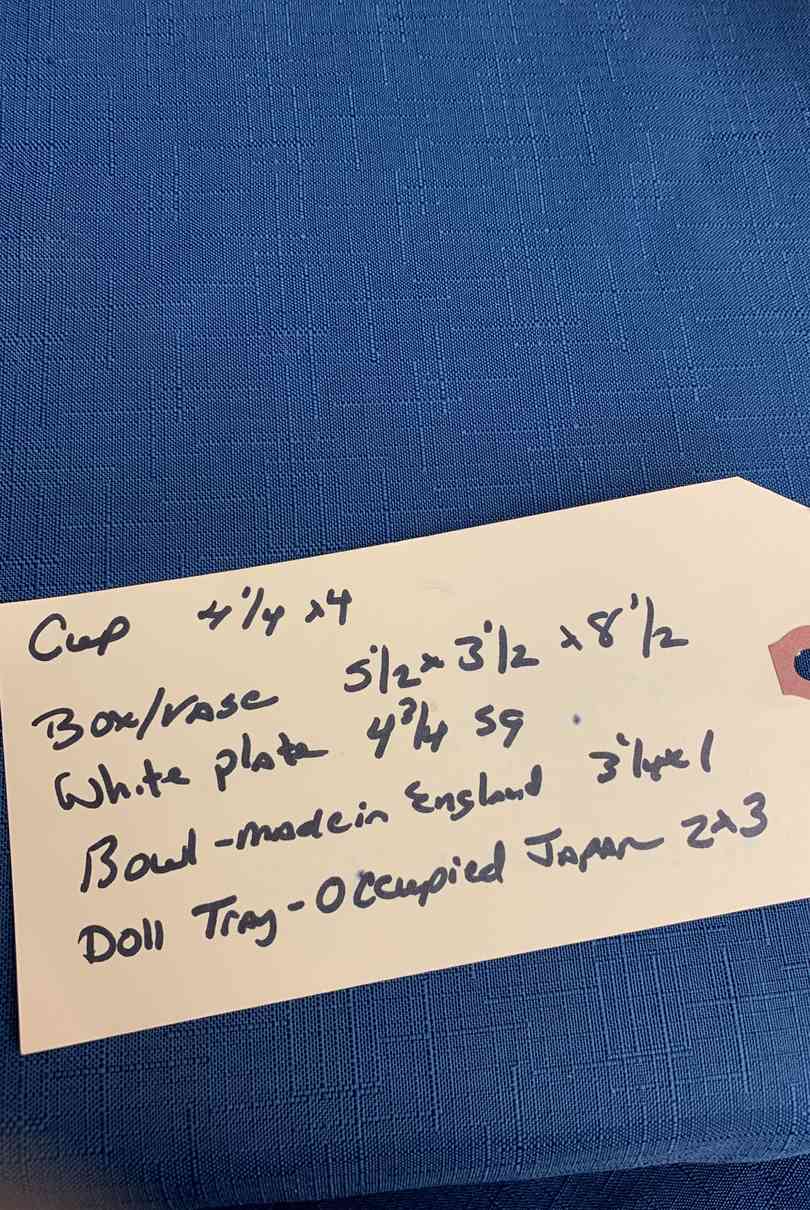 Cup 4 1/4 x 4
Box/vase 5 1/2 x 3 1/2 x 8 1/2
White plate 4 3/4 sq
Bowl - made in England 3 1/4 x 1
Doll Tray - Occupied Japan 2 x 3